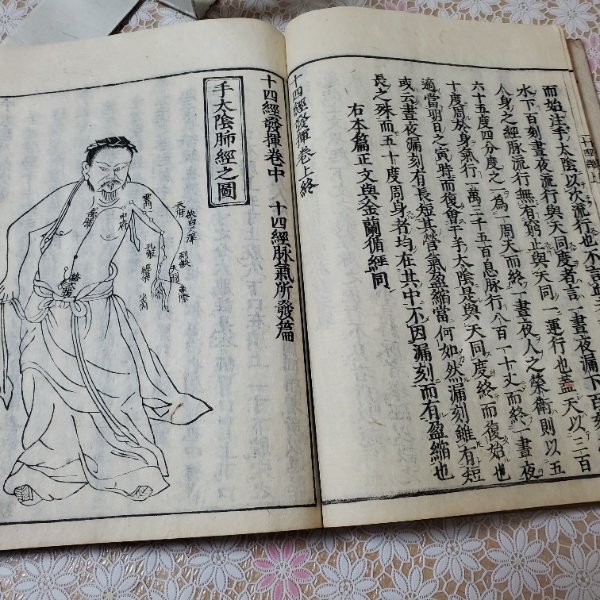 而始注手太陰以次流行也不言
水下百刻晝夜流行與天同度者言一晝夜漏下百刻
人身之經脉流行無有窮止與天同一運行也蓋天以三百
六十五度四分度之一為一周天而終一晝夜人之榮衛則以五
十度周於身氣行一萬三千五百息脉行八百一十丈而終一晝夜
適當明日之寅時而復會于手太陰是與天同度終而復始也
或云晝夜漏刻有長短其營氣盈縮當何如然漏刻雖有短
長之殊而五十度周身者均在其中不因漏刻而有盈縮也
右本篇正文與金蘭循經同
十四經發揮卷上終
十四經發揮卷中
十四經脉氣所發篇
手太陰肺經之圖
雲門
中府
天府
俠白
尺澤
孔最
列缺
經渠
太淵
魚際
少商